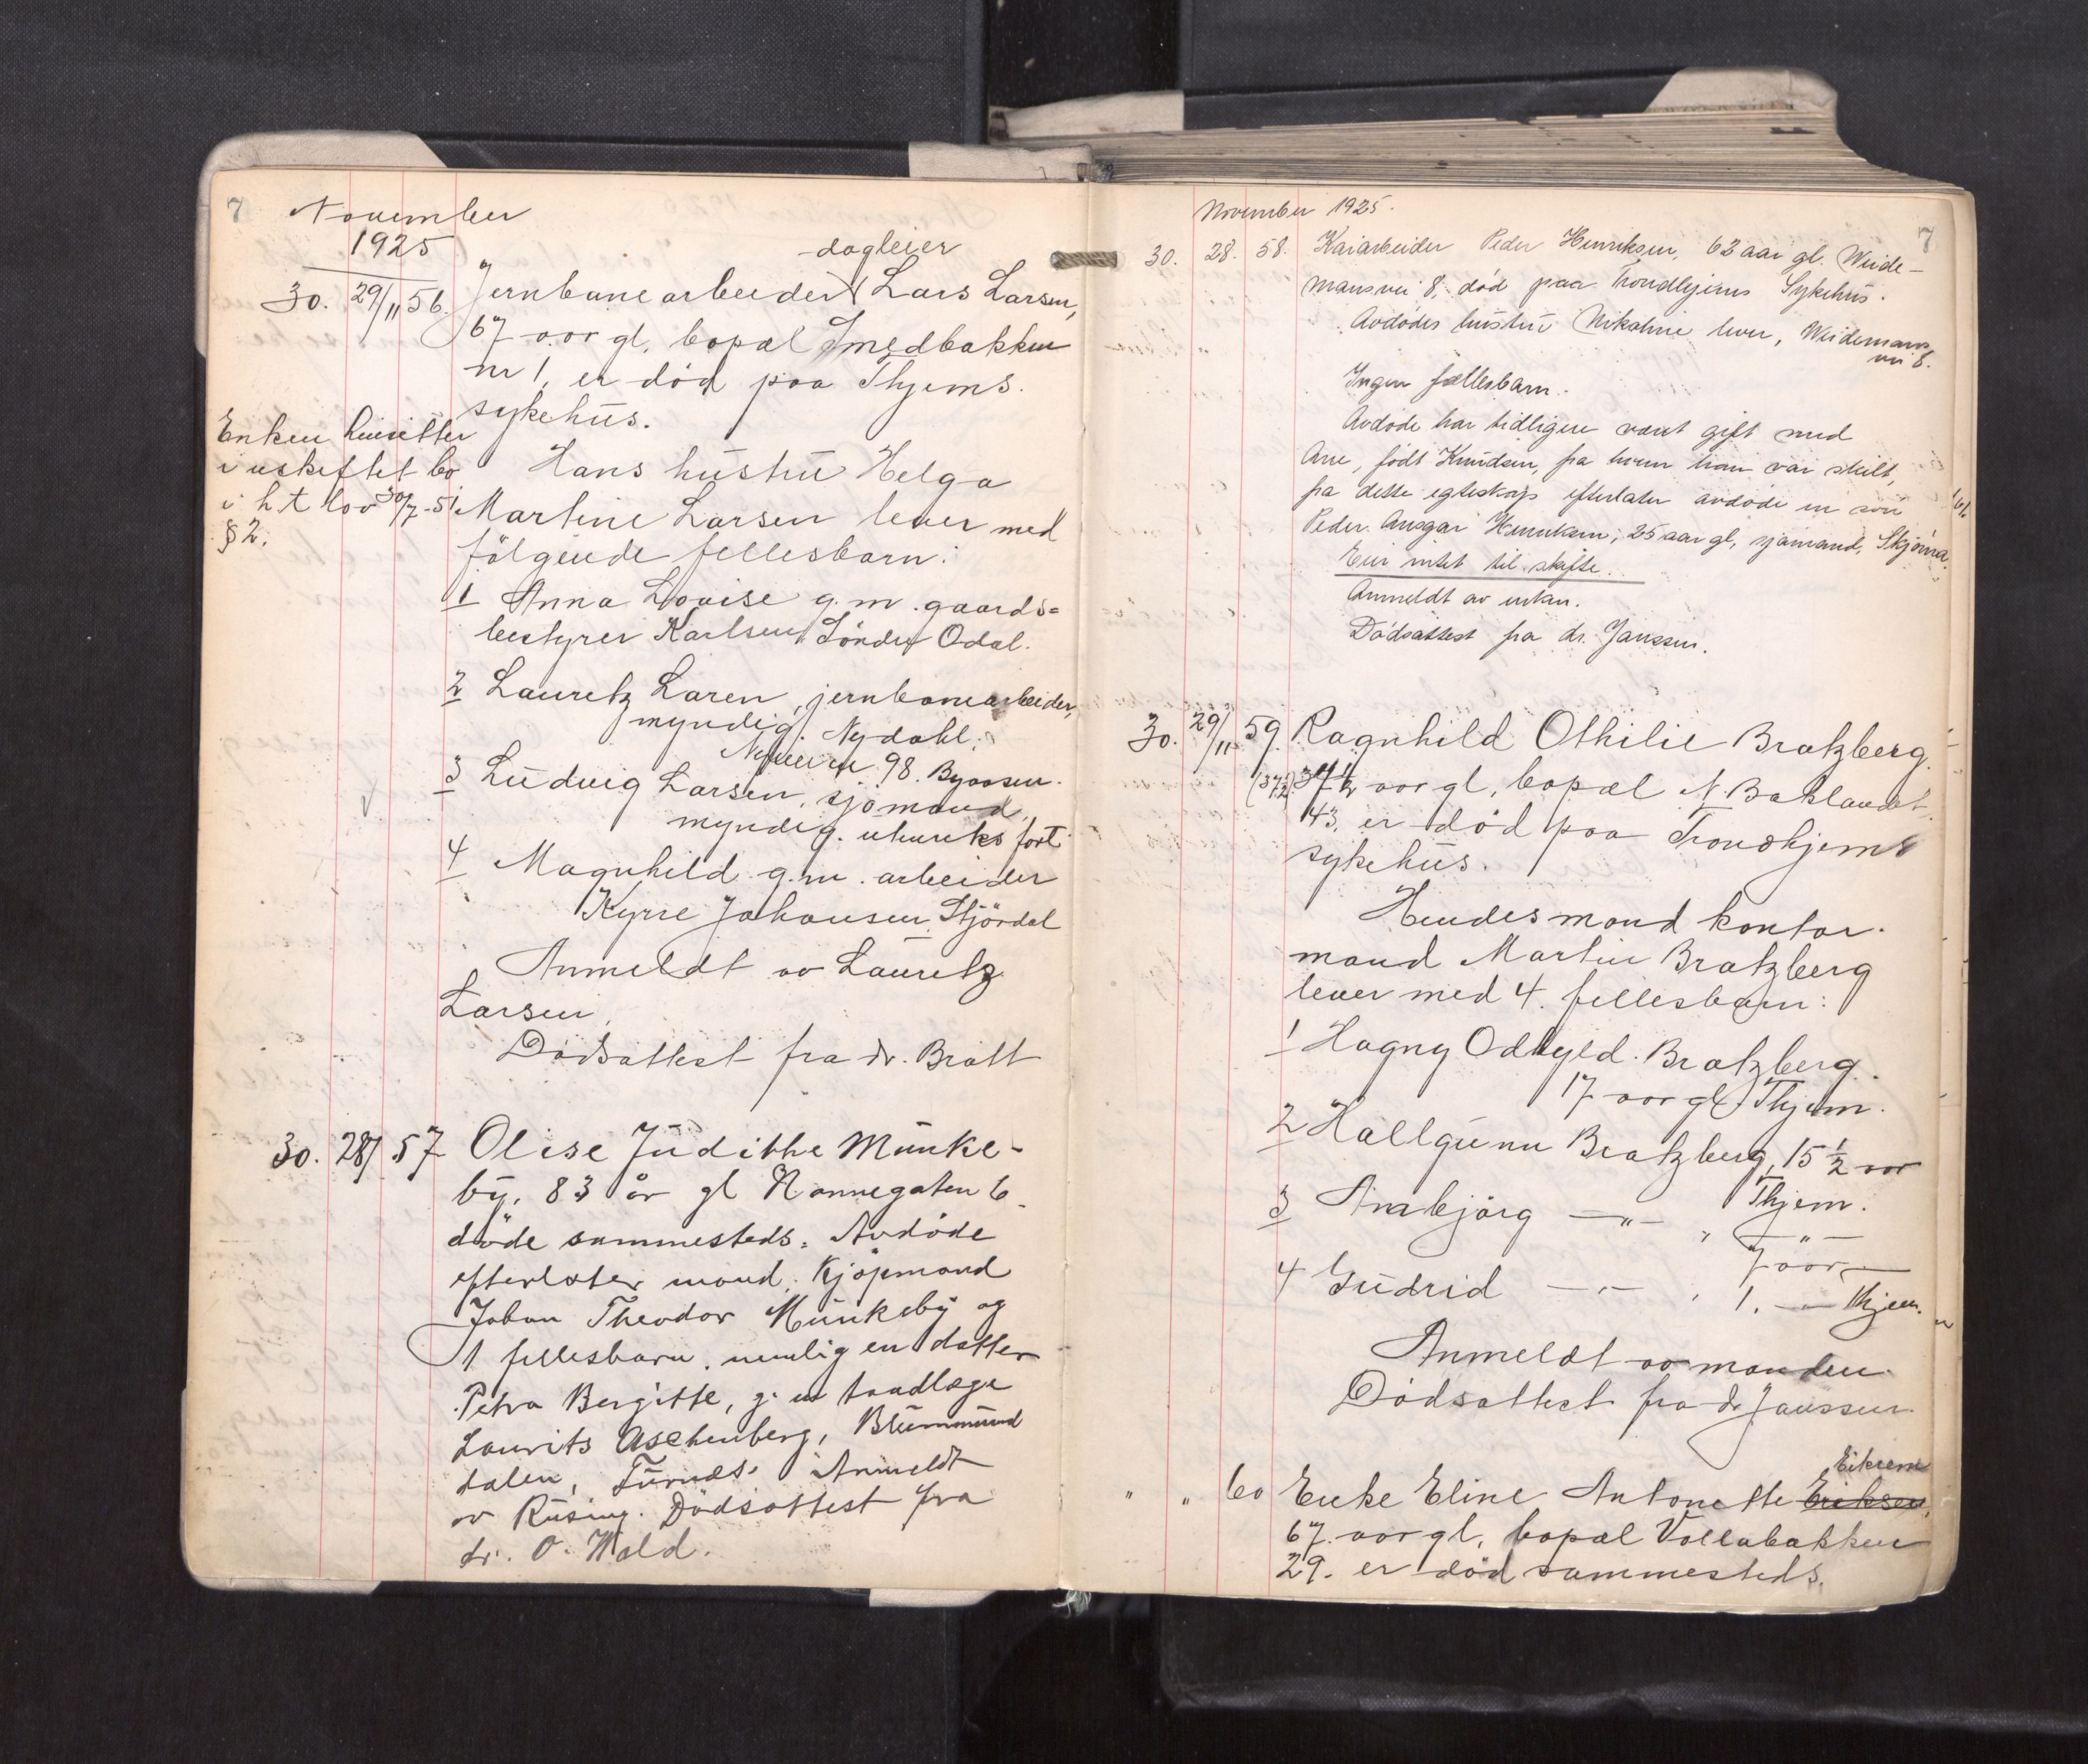 7
November
1925
dagleier
30. 29/11 56. Jernbanearbeider Lars Larsen,
67 aar gl, bopæl Smedbakken
nr 1, er död paa Thjems.
sykehus.
Enken hensitter
i uskiftet bo
i h t lov 30/7-51
§ 2.
Hans hustru Helga
Martine Larsen lever med
fölgende fellesbarn:
1 Anna Lovise g.m. gaards=
bestyrer Karlsen, Söndre Odal.
2 Lauretz Laren, jernbanearbeider,
myndig. Nydahl.
Nyveien 98. Byaasen.
3 Ludvig Larsen, sjömand,
myndig. utenriks fart
4 Magnhild g.m. arbeider
Kyrre Johansen, Stjördal
Anmeldt av Lauretz
Larsen.
Dödsattest fra dr. Bratt
30. 28/ 57 Olise Judithe Munke-
by, 83 år gl Nonnegaten 6
döde sammesteds. Avdöde
efterlater mand, Kjöpmand
Johan Theodor Munkeby og
1 fellesbarn, nemlig en datter
Petra Bergitte, g. m tandlæge
Laurits Aschenberg, Brummund
dalen, Furnes. Anmeldt
av Rusing. Dödsattest fra
dr. O. Wald.
7
November 1925.
30. 28. 58. Kaiarbeider Peder Henriksen, 62 aar gl. Weide-
mansvei 8, död paa Trondhjems Sykehus.
Avdödes hustru Nikoline lever, Weidemans
vei 8.
Ingen fællesbarn.
Avdöde har tidligere vært gift med
Ane, födt Knudsen, fra hvem han var skilt,
fra dette egteskap efterlater avdöde en sön
Peder Ansgar Henriksen, 25 aar gl, sjömand,
Eier intet til skifte.
Anmeldt av enken.
Dödsattest fra dr. Janssen.
30. 29/11 59. Ragnhild Othilie Bratzberg.
(37½) 37½ aar gl, bopæl N. Baklandet
43, er död paa Trondhjems
sykehus.
Hendes mand kontor-
mand Martin Bratzberg
lever med 4 fellesbarn:
1 Hagny Odhyld Bratzberg.
17 aar gl. Thjem.
2 Hallgunn Bratzberg, 15 ½ aar
Thjem.
3 Arnbjörg —"— , —"—
7 aar —
4 Gudrid —"— , 1. —"— Thjem.
Anmeldt av manden.
Dödsattest fra dr Janssen.
Eikrem
" " 60 Enke Eline Antonette Eriksen,
67 aar gl, bopæl Vollabakken
29. er död sammesteds.